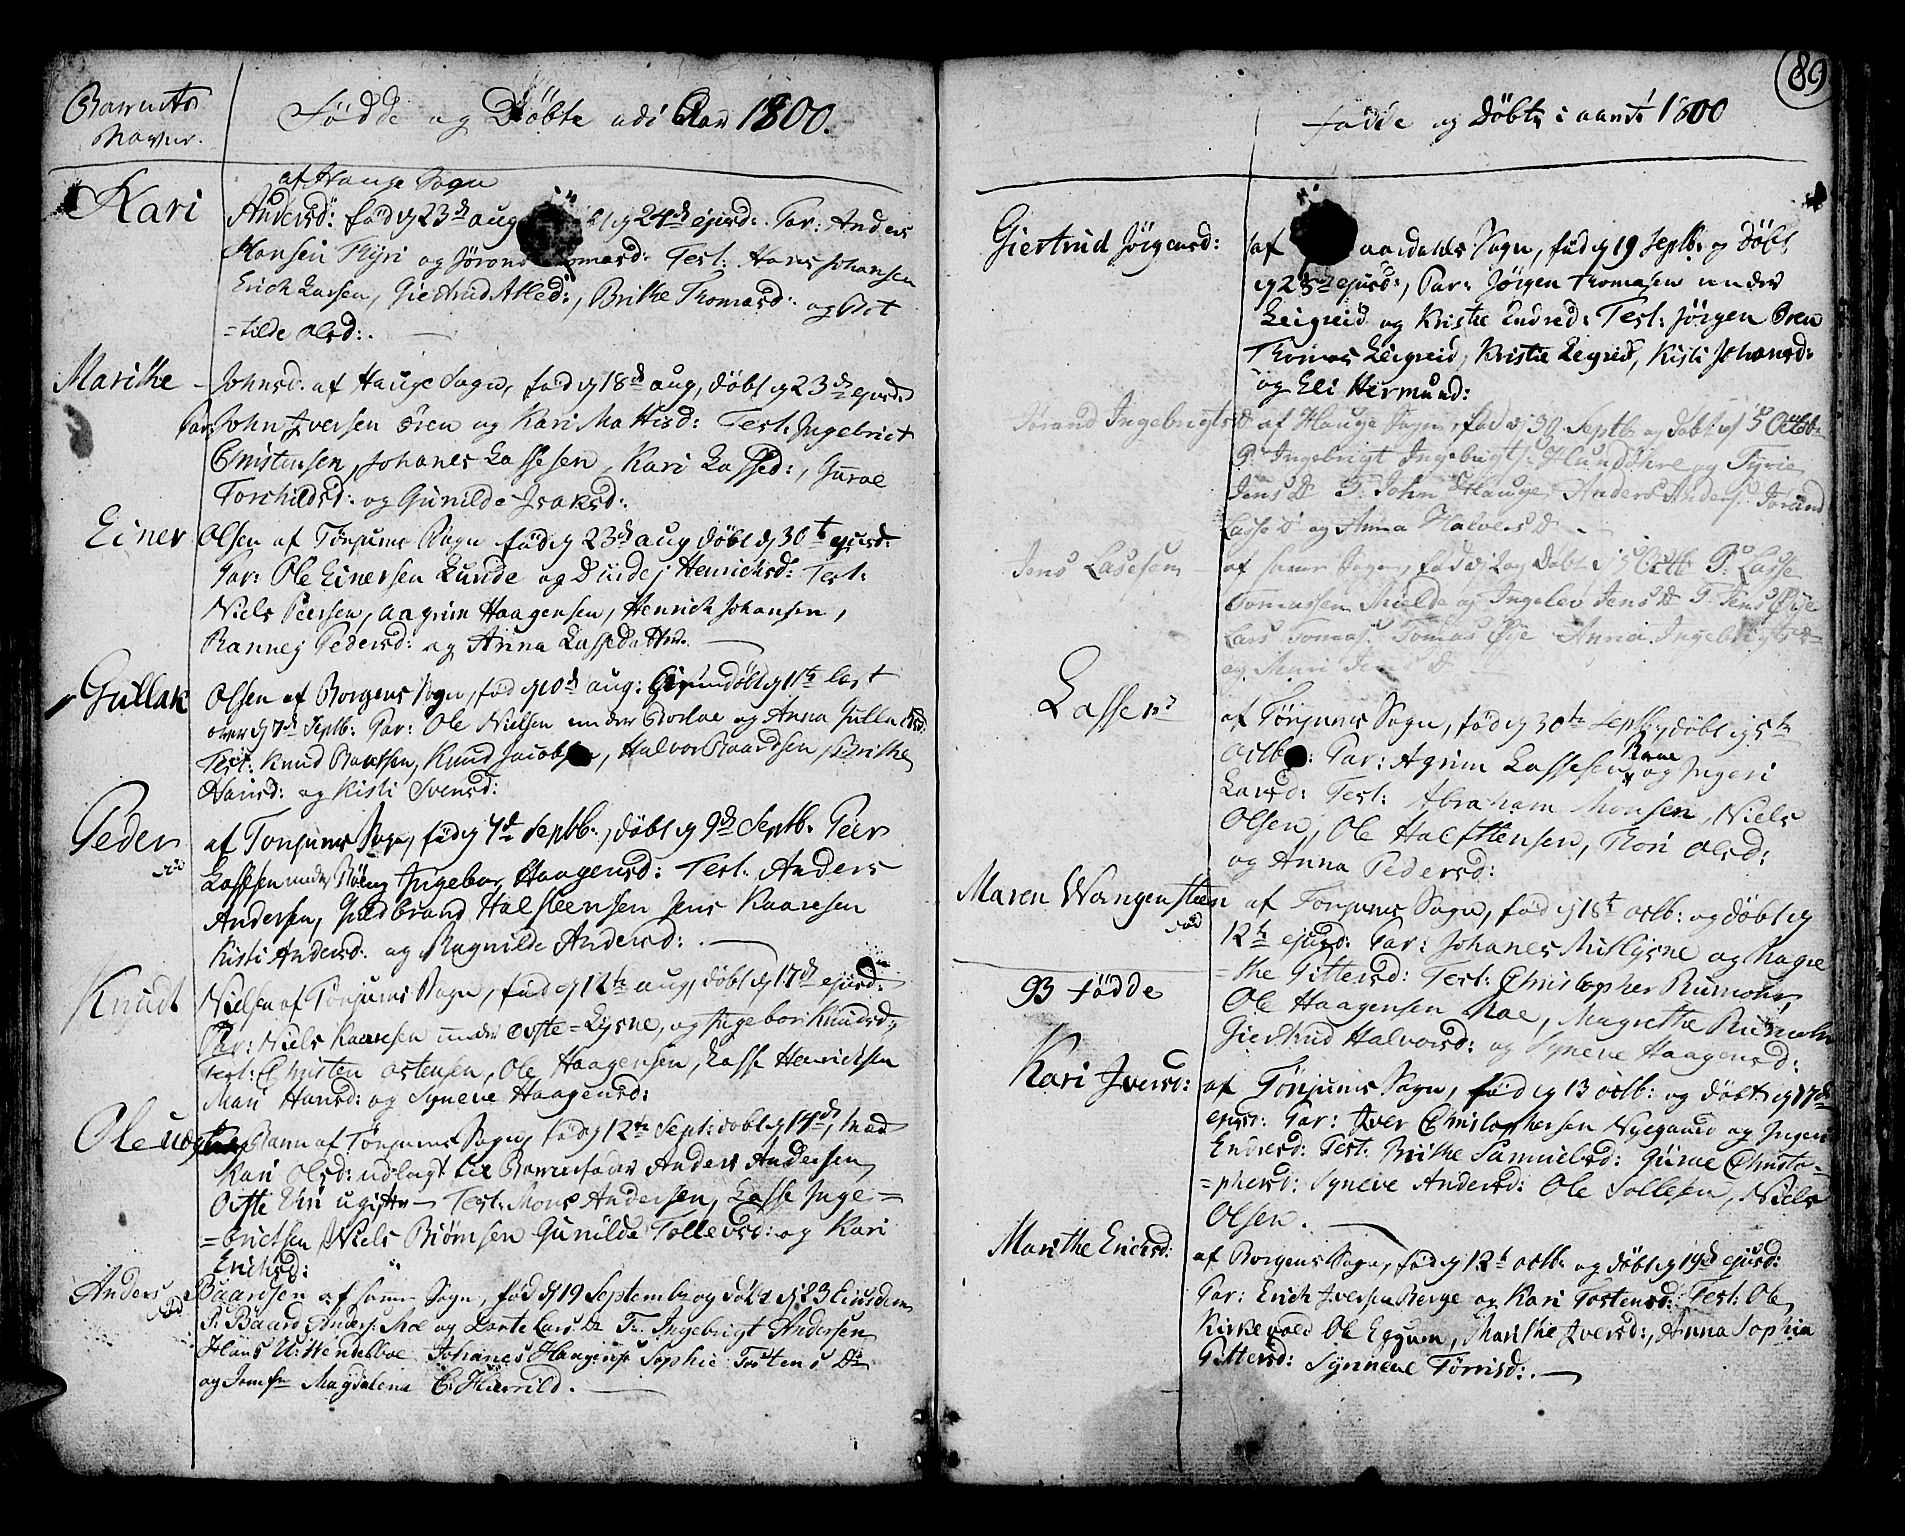 Barnets
Navne.
Födde og Döbte udi Aar 1800.
Kari
af Hauge Sogn
Andersd: född 23d aug 24d ejusd: Par: Anders
Hansen Plyri og Jörond Test: Hans Johansen
Erich Larsen, Giertrud Atled:, Brithe Thomasd: og Bot
=tilde Olsd:.
Marithe
Johnsd: af Hauge Sogn, född 18d aug, döbt d 23d ejusd:
Par: John Iversen Ören og Kari Mattisd: Test: Ingebrict
Christensen, Johanes Lassesen, Kari Lassed:, Guroe
Torchildsd: og Gunilde Isaksd:
Einer
Olsen af Tönjums Sogn född 23d aug döbt d 30t ejusd:
Par: Ole Einersen Lunde og Henrichsd: Test:
Niels Peersen, Aagrim Haagensen, Henrich Johansen,
Rannej Pedersd: og Anna Lassedatter.
Gullak
Olsen af Borgens Sogn, född 10d aug: læst
over d 7d Septb: Par: Ole Nielsen og Anna Gullaksd:
Test: Knud Baardsen, Knud Jacobsen, Halvor Baardsen, Brithe
Hansd: og Kisti Svensd:
Peder
af Tonjums Sogn, född 7d Septb:, döbt d 9d Septb: Peer
Lassesen Ingebor Haagensd: Test: Anders
Andersen, Guldbrand Halsteensen Jens Kaaresen
Kisti Andersd: og Ragnilde Andersd:.
Knudt
Nielsen af Tönjums Sogn, född 12te aug, döbt d 17d ejusd:
Par: Niels Kaaresen Öfste=Lysne, og Ingebor Knudsd:
Test: Christen Ostensen, Ole Haagensen, Lasse Henricksen
Mari Hansd: og Syneve Haagensd:
Ole uægte
Barn af Tönjums Sogn, född 12te Sept: döbt d 14d, med
Kari Olsd: udlagt til Barnefader Anders Andersen
Öifte Eri ugifte — Test: Mons Andersen, Lasse Inge=
=brictsen, Niels Biörnsen Gunilde Tollevsd: og Kari
Erichsd:
Anders
Baardsen af samme Sogn, föd d 19 September og döbt d 23 Eiusdem
P. Baard Anders: Moe og Dorte Lars D. T. Ingebrigt Andersen
Hans U: Wendelboe Johanes Haagens: Sophie Tostens Dr
og Jomfr Magdalena C. Hiervild.
89
födde og Döbte i aaret 1800
Giertrud Jörgensd:
af aardals Sogn, född 19 Septb: og döbt
d 23d ejusd:, Par: Jörgen Thomasen under
Leigreid og Kristie Endred: Test: Jörgen Øren
Thomas Leigreid, Kristie Legreid, Kisti Johansd:
og Eli Hermund:
Jørand Ingebrigts D
af Hauge Sogn, fød d 30 Septb og døbt d 5 Octob:
P. Ingebrigt Ingebrigts: Hundøhre og Tyrie
Jens D. T. John Hauge, Anders Anders: Jorand
Lasse D og Anna Halvers D.
Jens Lassesen
af samme Sogn, fød d 2 og Døbt d 5 Octb: P. Lasse
Tomassen Mielde og Ingelev Jens D T. Jens Øie
Lars Tomas: Tomas Øie Anna Ingebrigts D
og Mari Jens D
Lasse
af Tönjums Sogn, född 30te Septb, döbt d 5te
octb: Par: Agrim Lassesen Rane og Ingeri
Larsd: Test: Abraham Monsen, Niels
Olsen, Ole Halfstensen, Thori Olsd:
og Anna Pedersd:
Maren Wangensteen
af Tönjums Sogn, född octb: og döbt d
12te ejusd: Par: Johanes og Magre
=the Pittersd: Test: Christopher Rumohr
Ole Haagensen Moe, Magrethe Rumohr
Giertrud Halvorsd: og Syneve Haagensd:
93 födde
Kari Iversd:
af Tönjums Sogn, född 13 octb: og döbt d 17d
ejusd: Par: Iver Christophersen Nyegaard og Ingeri
Endresd: Test: Brithe Samuelsd: Guroe Christo=
=phersd: Syneve Andersd: Ole Sollesen, Niels
Olsen.
Marithe Erichsd:
af Borgens Sogn, född 12t octb: og döbt d 19d ejusd:
Par: Erich Iversen Berge og Kari Tostensd: Test: Ole
Kirkevold Ole Eggum, Marithe Iversd:, Anna Sophia
Pittersd: Synneve Torrisd:.